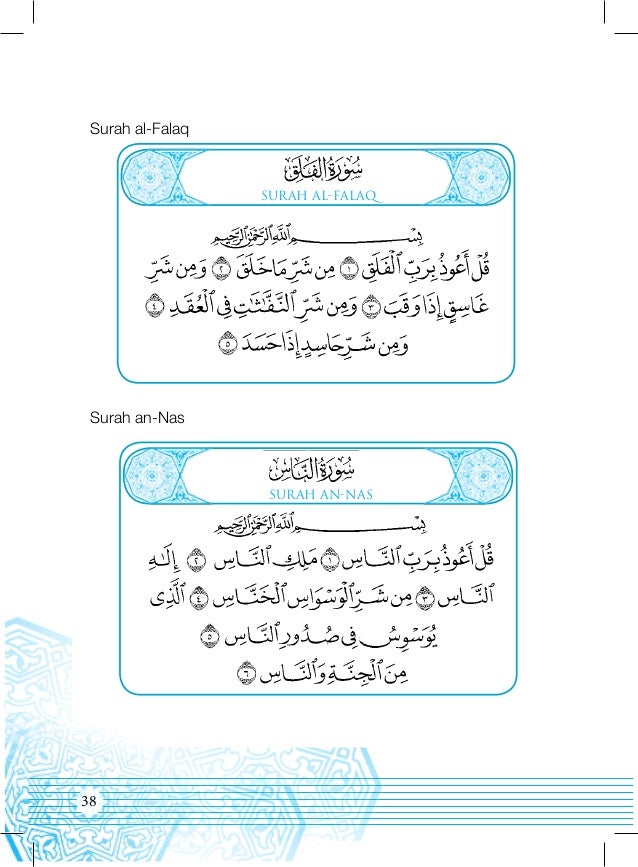 Surah al-Falaq
سُورَةُ الفَلَقِ
SURAH AL-FALAQ
بِسْمِ ٱللَّهِ ٱلرَّحْمَٰنِ ٱلرَّحِيمِ
قُلْ أَعُوذُ بِرَبِّ ٱلْفَلَقِ ١ مِن شَرِّ مَا خَلَقَ ٢ وَمِن شَرِّ
غَاسِقٍ إِذَا وَقَبَ ٣ وَمِن شَرِّ ٱلنَّفَّٰثَٰتِ فِى ٱلْعُقَدِ ٤
وَمِن شَرِّ حَاسِدٍ إِذَا حَسَدَ ٥
Surah an-Nas
سُورَةُ النَّاسِ
SURAH AN-NAS
بِسْمِ ٱللَّهِ ٱلرَّحْمَٰنِ ٱلرَّحِيمِ
قُلْ أَعُوذُ بِرَبِّ ٱلنَّاسِ ١ مَلِكِ ٱلنَّاسِ ٢ إِلَٰهِ
ٱلنَّاسِ ٣ مِن شَرِّ ٱلْوَسْوَاسِ ٱلْخَنَّاسِ ٤ ٱلَّذِى
يُوَسْوِسُ فِى صُدُورِ ٱلنَّاسِ ٥
مِنَ ٱلْجِنَّةِ وَٱلنَّاسِ ٦
38